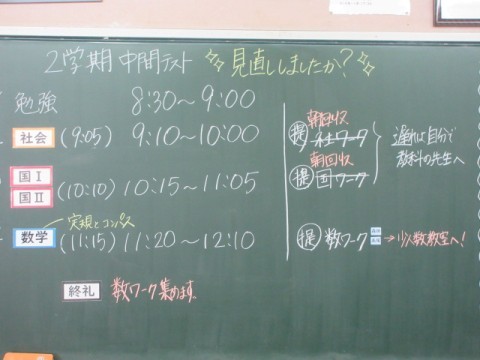 2学期 中間テスト 見直ししましたか?
勉強 8:30～9:00
社会 (9:05) 9:10～10:00
国Ⅰ
国Ⅱ (10:10) 10:15～11:05
定規とコンパス
数学 (11:15) 11:20～12:10
終礼 数ワーク集めます。
朝回収ス
提 社ワーク
朝回収ス
提 国ワーク
遅れは自分で
教科の先生へ
提 数ワーク → 少人数教室へ!